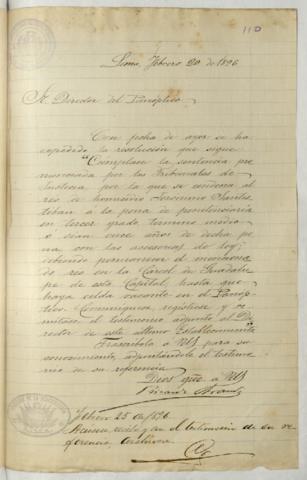 110
Lima, Febrero 20 de 1896
Sr. Director del Panóptico.
Con fecha de ayer se ha
expedido la resolución que sigue
"Cúmplase la sentencia pro
nunciada por los Tribunales de
Justicia por la que se condena al
reo de homicidio Jerónimo Santis
tiban á la pena de penitenciaría
en tercer grado, término medio
ó sean once años de dicha pe
na con las accesorias de ley;
debiendo permanecer el mencionado
reo en la Cárcel de Guadalu
pe de esta Capital hasta que
haya celda vacante en el Panóp
tico. Comuníquese, regístrese y re
mítase el testimonio adjunto al Di
rector de este último Establecimiento"
Trascríbolo á US. para su
conocimiento, adjuntándole el testimo
nio de su referencia.
Dios gue. á US.
Febrero 25 de 1896
recibo con el testimonio de su re
ferencia, archívese